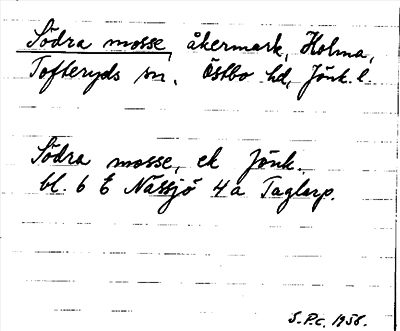 Södra mosse, åkermark, Holma,
Tofteryds sn. Östbo hd, Jönk. l.
Södra mosse, ek Jönk.
bl. 6 E Nässjö 4 a Taglarp.
S.P.C. 1956.